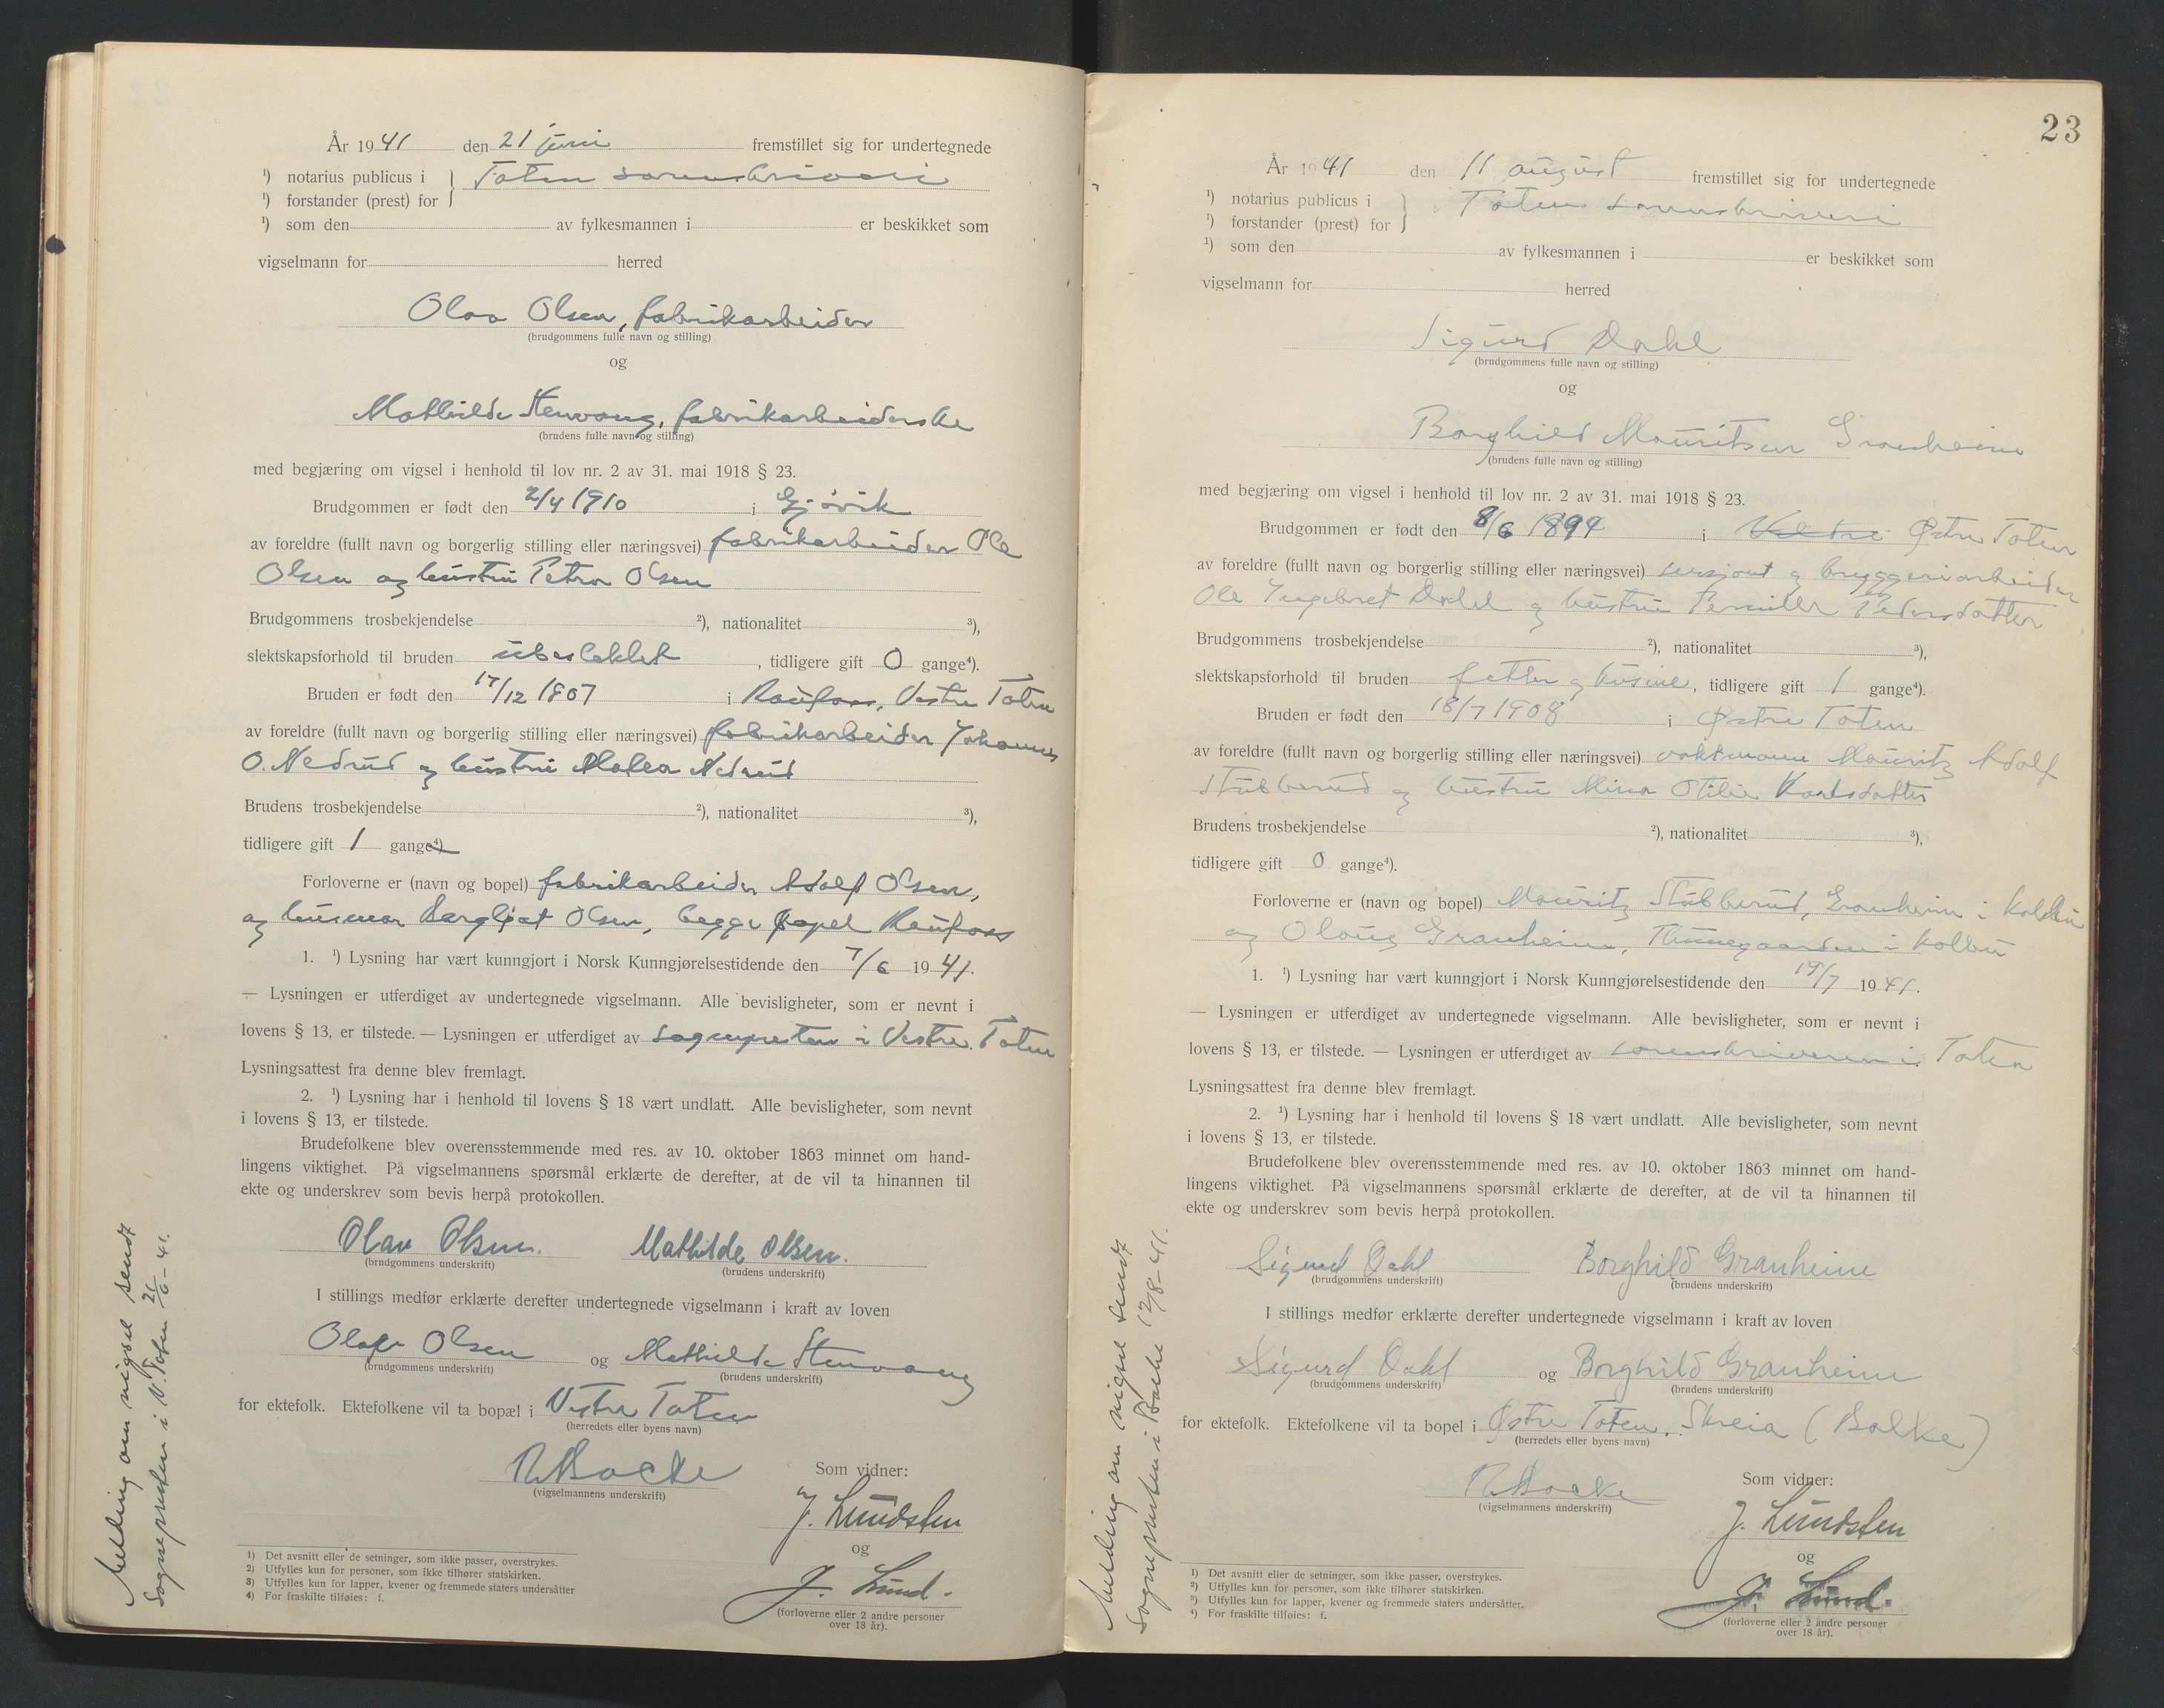 År 1941 den 21 juni fremstillet sig for undertegnede
¹) notarius publicus i } Toten sorenskriveri
¹) forstander (prest) for
¹) som den av fylkesmannen i er beskikket som
vigselmann for herred
Olav Olsen, fabrikarbeider
(brudgommens fulle navn og stilling)
og
Mathilde Stenvang, fabrikarbeiderske
(brudens fulle navn og stilling)
med begjæring om vigsel i henhold til lov nr. 2 av 31. mai 1918 § 23.
Brudgommen er født den 2/4 1910 i Gjøvik
av foreldre (fullt navn og borgerlig stilling eller næringsvei) fabrikarbeider Ole
Olsen og hustru Petra Olsen
Brudgommens trosbekjendelse ²), nationalitet ³),
slektskapsforhold til bruden ubeslektet , tidligere gift 0 gange⁴).
Bruden er født den 17/12 1807 i Raufoss, Vestre Toten
av foreldre (fullt navn og borgerlig stilling eller næringsvei) fabrikarbeider Johannes
O. Nedrud og hustru Malea Nedrud
Brudens trosbekjendelse ²), nationalitet ³),
tidligere gift 1 gange⁴)
Forloverne er (navn og bopel) fabrikarbeider Adolf Olsen,
og husmor Bergljot Olsen, begge bopel Raufoss
1. ¹) Lysning har vært kunngjort i Norsk Kunngjørelsestidende den 7/6 1941.
— Lysningen er utferdiget av undertegnede vigselmann. Alle bevisligheter, som er nevnt i
lovens § 13, er tilstede. — Lysningen er utferdiget av sognepresten i Vestre Toten
Lysningsattest fra denne blev fremlagt.
2. ¹) Lysning har i henhold til lovens § 18 vært undlatt. Alle bevisligheter, som nevnt
i lovens § 13, er tilstede.
Brudefolkene blev overensstemmende med res. av 10. oktober 1863 minnet om hand-
lingens viktighet. På vigselmannens spørsmål erklærte de derefter, at de vil ta hinannen til
ekte og underskrev som bevis herpå protokollen.
Olav Olsen. Mathilde Olsen.
(brudgommens underskrift) (brudens underskrift)
I stillings medfør erklærte derefter undertegnede vigselmann i kraft av loven
Olaf Olsen og Mathilde Stenvang
(brudgommens underskrift) (brudens underskrift)
for ektefolk. Ektefolkene vil ta bopæl i Vestre Toten
(herredets eller byens navn)
(vigselmannens underskrift)
Som vidner:
J. Lundsten
og
J. Lund.
(forloverne eller 2 andre personer
over 18 år).
1) Det avsnitt eller de setninger, som ikke passer, overstrykes.
2) Utfylles kun for personer, som ikke tilhører statskirken.
3) Utfylles kun for lapper, kvener og fremmede staters undersåtter
4) For fraskilte tilføies: f.
Melding om vigsel sendt
sogneprsten i V. Toten 21/6 - 41.
23
År 1941 den 11 august fremstillet sig for undertegnede
¹) notarius publicus i } Toten sorenskriveri
¹) forstander (prest) for
¹) som den av fylkesmannen i er beskikket som
vigselmann for herred
Sigurd Dahl
(brudgommens fulle navn og stilling)
og
Borghild Mauritsen Granheim
(brudens fulle navn og stilling)
med begjæring om vigsel i henhold til lov nr. 2 av 31. mai 1918 § 23.
Brudgommen er født den 8/6 1894 i Østre Toten
av foreldre (fullt navn og borgerlig stilling eller næringsvei) sersjant og bryggeriarbeider
Ole Ingebret Dahl og hustru Pernille Pedersdatter
Brudgommens trosbekjendelse ²), nationalitet ³),
slektskapsforhold til bruden fetter og kusine, tidligere gift 1 gange⁴).
Bruden er født den 18/7 1908 i Østre Toten
av foreldre (fullt navn og borgerlig stilling eller næringsvei) vaktmann Mauritz Adolf
Stubberud og hustru Mina Otilie Karlsdatter
Brudens trosbekjendelse ²), nationalitet ³),
tidligere gift 0 gange⁴).
Forloverne er (navn og bopel) Mauritz Stubberud, Granheim i Kolbu
og Olaug Granheim, Thunegaarden i Kolbu
1. ¹) Lysning har vært kunngjort i Norsk Kunngjørelsestidende den 19/7 1941.
— Lysningen er utferdiget av undertegnede vigselmann. Alle bevisligheter, som er nevnt i
lovens § 13, er tilstede. — Lysningen er utferdiget av sorenskriveren i Toten
Lysningsattest fra denne blev fremlagt.
2. ¹) Lysning har i henhold til lovens § 18 vært undlatt. Alle bevisligheter, som nevnt
i lovens § 13, er tilstede.
Brudefolkene blev overensstemmende med res. av 10. oktober 1863 minnet om hand-
lingens viktighet. På vigselmannens spørsmål erklærte de derefter, at de vil ta hinannen til
ekte og underskrev som bevis herpå protokollen.
Sigurd Dahl Borghild Granheim
(brudgommens underskrift) (brudens underskrift)
I stillings medfør erklærte derefter undertegnede vigselmann i kraft av loven
Sigurd Dahl og Borghild Granheim
(brudgommens underskrift) (brudens underskrift)
for ektefolk. Ektefolkene vil ta bopel i Østre Toten. Skreia (Balke)
(herredets eller byens navn)
(vigselmannens underskrift)
Som vidner:
J. Lundsten
og
J. Lund.
(forloverne eller 2 andre personer
over 18 år).
1) Det avsnitt eller de setninger, som ikke passer, overstrykes.
2) Utfylles kun for personer, som ikke tilhører statskirken.
3) Utfylles kun for lapper, kvener og fremmede staters undersåtter.
4) For fraskilte tilføies: f.
Melding om vigsel sendt
sogneprsten i Balke 12/8-41.